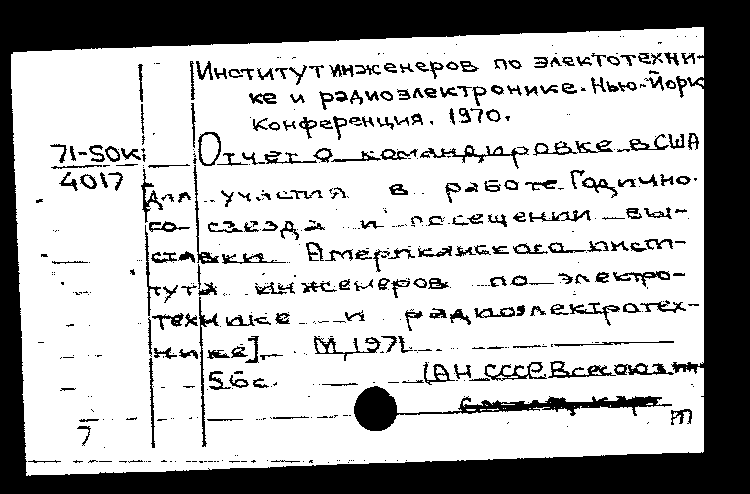 Институт инженеров по электотехни-
ке и радиоэлектронике. Нью-Йорк
Конференция. 1970.
71-SOK
4017
Отчет о командировке в США
[для участия в работе Годично-
го съезда и посещении вы-
ставки Американского инсти-
тута инженеров по электро-
технике и радиоэлектротех-
нике]. М, 1971
56с. (АН СССР. Всесоюз
7